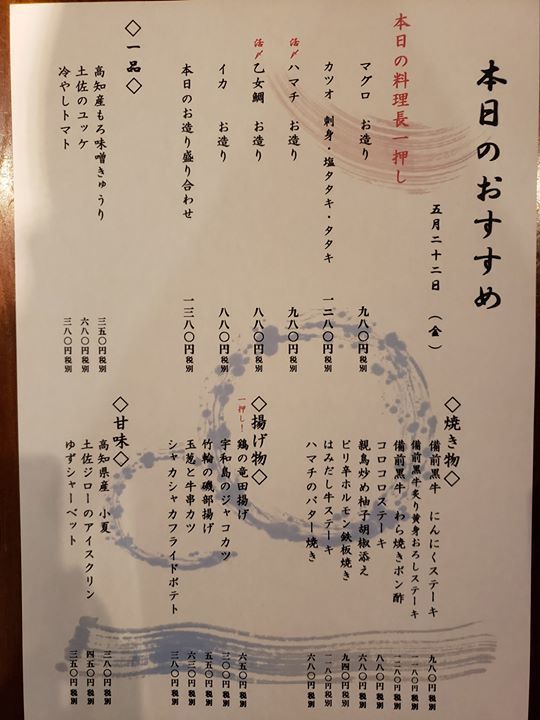 本日のおすすめ
五月二十二日（金）
本日の料理長一押し
マグロ　お造り　九八〇円税別
カツオ　刺身・塩タタキ・タタキ　一二八〇円税別
活〆ハマチ　お造り　九八〇円税別
活〆乙女鯛　お造り　八八〇円税別
イカ　お造り　八八〇円税別
本日のお造り盛り合わせ　一三八〇円税別
◇一品◇
高知産もろ味噌きゅうり　三五〇円税別
土佐のユッケ　六八〇円税別
冷やしトマト　三八〇円税別
◇焼き物◇
備前黒牛　にんにくステーキ　九八〇円税別
備前黒牛炙り黄身おろしステーキ　一一八〇円税別
備前黒牛　わら焼きポン酢　一二八〇円税別
コロコロステーキ　八八〇円税別
親鳥炒め柚子胡椒添え　六八〇円税別
ピリ辛ホルモン鉄板焼き　九四〇円税別
はみだし牛ステーキ　一一八〇円税別
ハマチのバター焼き　六八〇円税別
◇揚げ物◇
一押し！
鶏の竜田揚げ　六五〇円税別
宇和島のジャコカツ　三〇〇円税別
竹輪の磯部揚げ　五五〇円税別
玉葱と牛串カツ　六三〇円税別
シャカシャカフライドポテト　三八〇円税別
◇甘味◇
高知県産　小夏　三八〇円税別
土佐ジローのアイスクリン　四五〇円税別
ゆずシャーベット　三五〇円税別